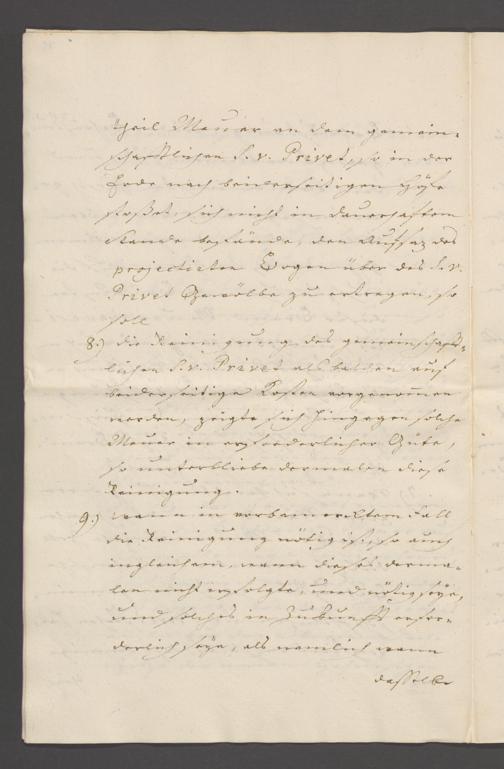 theil Mauer an dem gemein-
schaftlichen S. v. Privet, so in der
Erde nach beiderseitigen Höfe
stoßet, sich nicht in dauerhaftem
Stande befände, den Aufsaz des
projectirten Bogen über des S. v.
Privet Gewölbe zu ertragen, so
soll
8.) die Reinigung des gemeinschaft-
lichen S. v. Privet als balden auf
beiderseitige Kosten vorgenommen
werden, zeigte sich hingegen solche
Mauer in erforderlicher Güte,
so unterbliebe dermalen diese
Reinigung.
9.) wann in vorbemerktem Fall
die Reinigung nötig ist, so auch
ingleichem, wann dieses derma-
len nicht erfolgte, und nötig seye,
und solches in Zukunfft erfor-
derlich seye, als nemlich wann
dasselbe